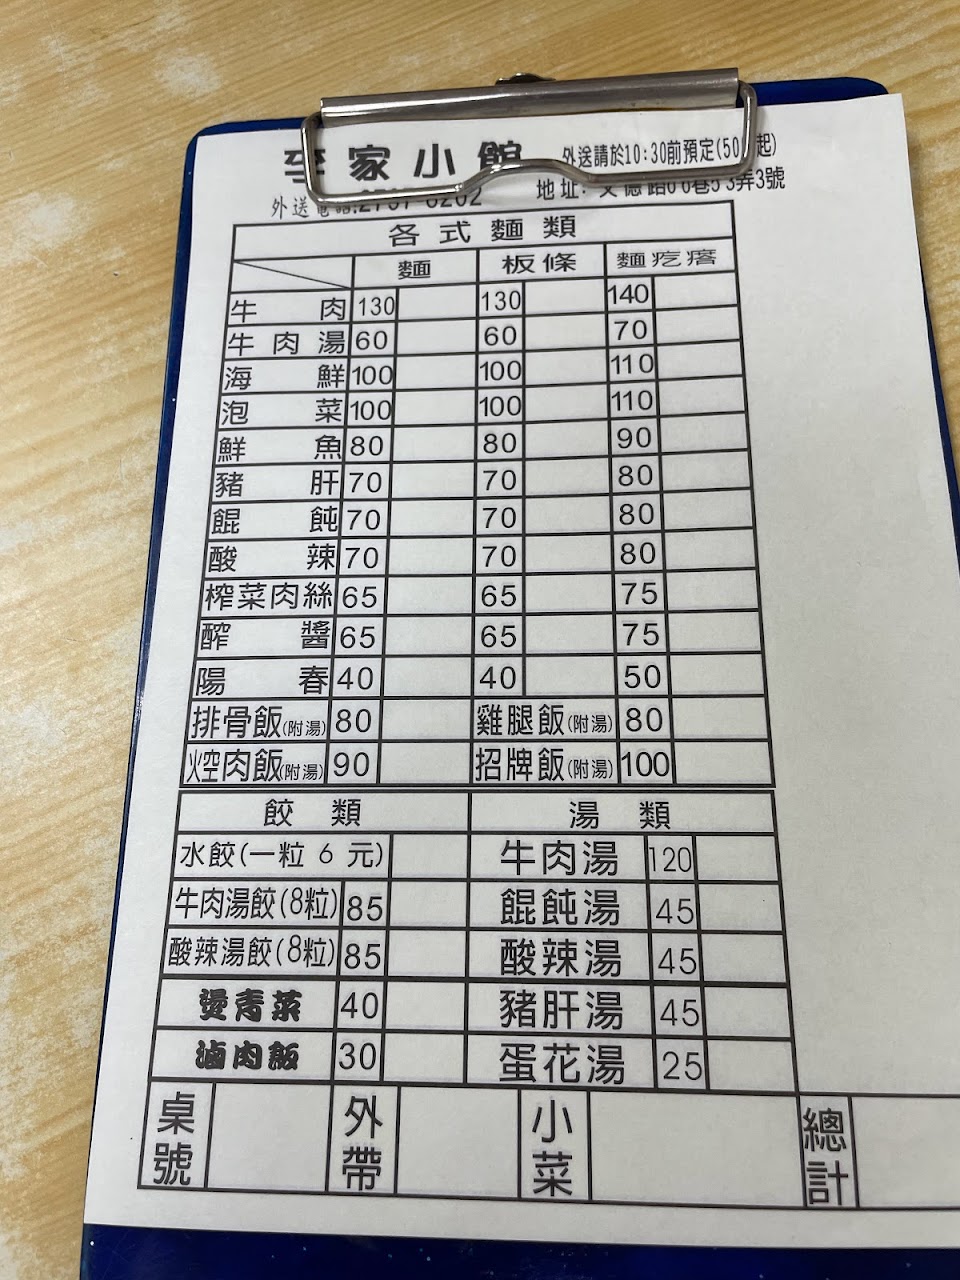 李家小館 外送請於10:30前預定(50 起)
外送電話:2797-0202 地址: 文德路66巷53弄3號
各式麵類
麵 板條 麵疙瘩
牛肉 130 130 140
牛肉湯 60 60 70
海鮮 100 100 110
泡菜 100 100 110
鮮魚 80 80 90
豬肝 70 70 80
餛飩 70 70 80
酸辣 70 70 80
榨菜肉絲 65 65 75
醡醬 65 65 75
陽春 40 40 50
排骨飯(附湯) 80 雞腿飯(附湯) 80
焢肉飯(附湯) 90 招牌飯(附湯) 100
餃類 湯類
水餃(一粒 6 元) 牛肉湯 120
牛肉湯餃(8粒) 85 餛飩湯 45
酸辣湯餃(8粒) 85 酸辣湯 45
燙青菜 40 豬肝湯 45
滷肉飯 30 蛋花湯 25
桌號 外帶 小菜 總計